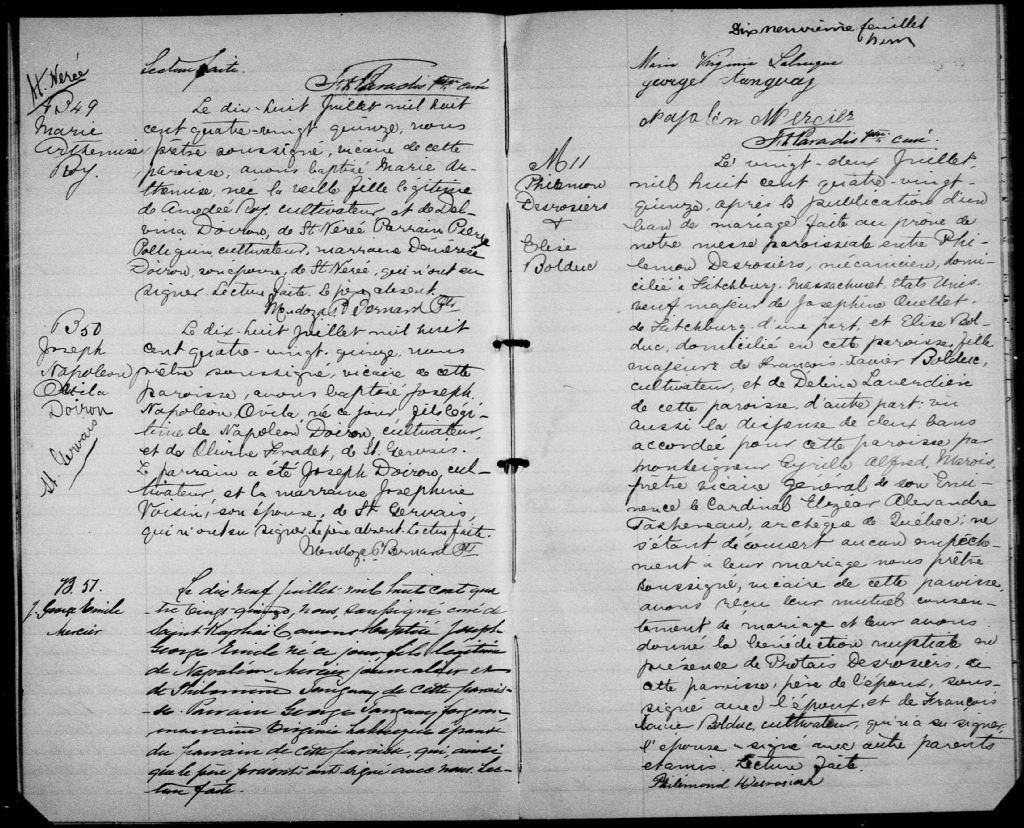 Lecture faite.
St. Nerée
B 49
Marie
Arthemise
Roy.
Le dix-huit Juillet mil huit
cent quatre-vingt quinze, nous
prêtre soussigné, vicaire de cette
paroisse, avons baptisé Marie Ar-
themise, née la veille fille légitime
de Amedée Roy, cultivateur et de Del-
vina Doiron, de St Nérée Parrain Pierre
cultivateur, marraine
Doiron, son épouse, de St. Nérée, qui n'ont su
signer. Lecture faite. Le père absent.
Mendoza P. Bernard Ptr
B 50
Joseph
Napoleon
Ovila
Doiron
St Gervais
Le dix-huit Juillet mil huit
cent quatre-vingt-quinze, nous
prêtre soussigné, vicaire de cette
paroisse, avons baptisé Joseph,
Napoleon, Ovila né ce jour, fils légi-
time de Napoleon Doiron, cultivateur,
et de Fradet, de St. Gervais.
Le parrain a été Joseph Doiron, cul-
tivateur, et la marraine Josephine
Voisin, son épouse, de St Gervais,
qui n'ont su signer. Le père absent. Lecture faite.
Mendoza P. Bernard Ptr
B. 51.
J. George Emile
Mercier
Le dix neuf Juillet mil huit cent qua-
tre vingt quinze, nous, soussigné curé de
Saint Raphaël avons baptisé Joseph
George Emile né ce jour fils légitime
de Napoléon Mercier journalier et
de Philomène Tanguay de cette parois-
se. Parrain George Tanguay forgeron
marraine Virginie Labrecque épouse
du parrain de cette paroisse, qui ainsi
que le père présent ont signé avec nous. Lec-
ture faite.
Dix neuvième feuillet
Marie Virginie Labrecque
george Tanguay
Napoléon Mercier
Paradis ptre curé.
M 11
Philemon
Desrosiers
&
Elise
Bolduc
Le vingt-deux Juillet
mil huit cent quatre-vingt-
quinze, après la publication d'un
ban de mariage faite au prône de
notre messe paroissiale entre Phi-
lemon Desrosiers, mécanicien, domi-
cilié à Fitchburg. Massachuset. Etats Unis.
veuf majeur de Josephine Ouellet.
de Fitchburg. d'une part, et Elise Bol-
duc, domicilié en cette paroisse, fille
majeure de François-Xavier Bolduc,
cultivateur, et de Delina Laverdière
de cette paroisse d'autre part; vu
aussi la dispense de deux bans
accordée pour cette paroisse par
Monseigneur Cyrille Alfred, Marois,
prêtre vicaire General de son Emi-
nence le Cardinal Elzéar Alexandre
Taschereau, archeque de Québec; ne
s'étant découvert aucun empêche-
ment à leur mariage nous prêtre
soussigné, vicaire de cette paroisse,
avons reçu leur mutuel consen-
tement de mariage et leur avons
donné la bénédiction nuptiale en
présence de Protais Desrosiers, de
cette paroisse, père de l'époux, sous-
signé avec l'époux, et de François
Xavier Bolduc, cultivateur, qui n'a su signer,
l'épouse a signé avec autre parents
et amis. Lecture faite.
Philemond Desrosier